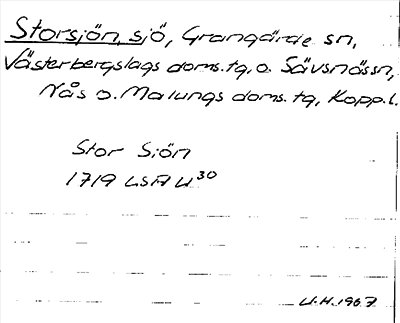 Storsjön, sjö, Grangärde sn,
Västerbergslags doms.tg, o. Säfsnäs sn,
Nås o. Malungs doms.tg, Kopp.l.
Stor Siön
1719 LSA U³⁰
U.H. 1967